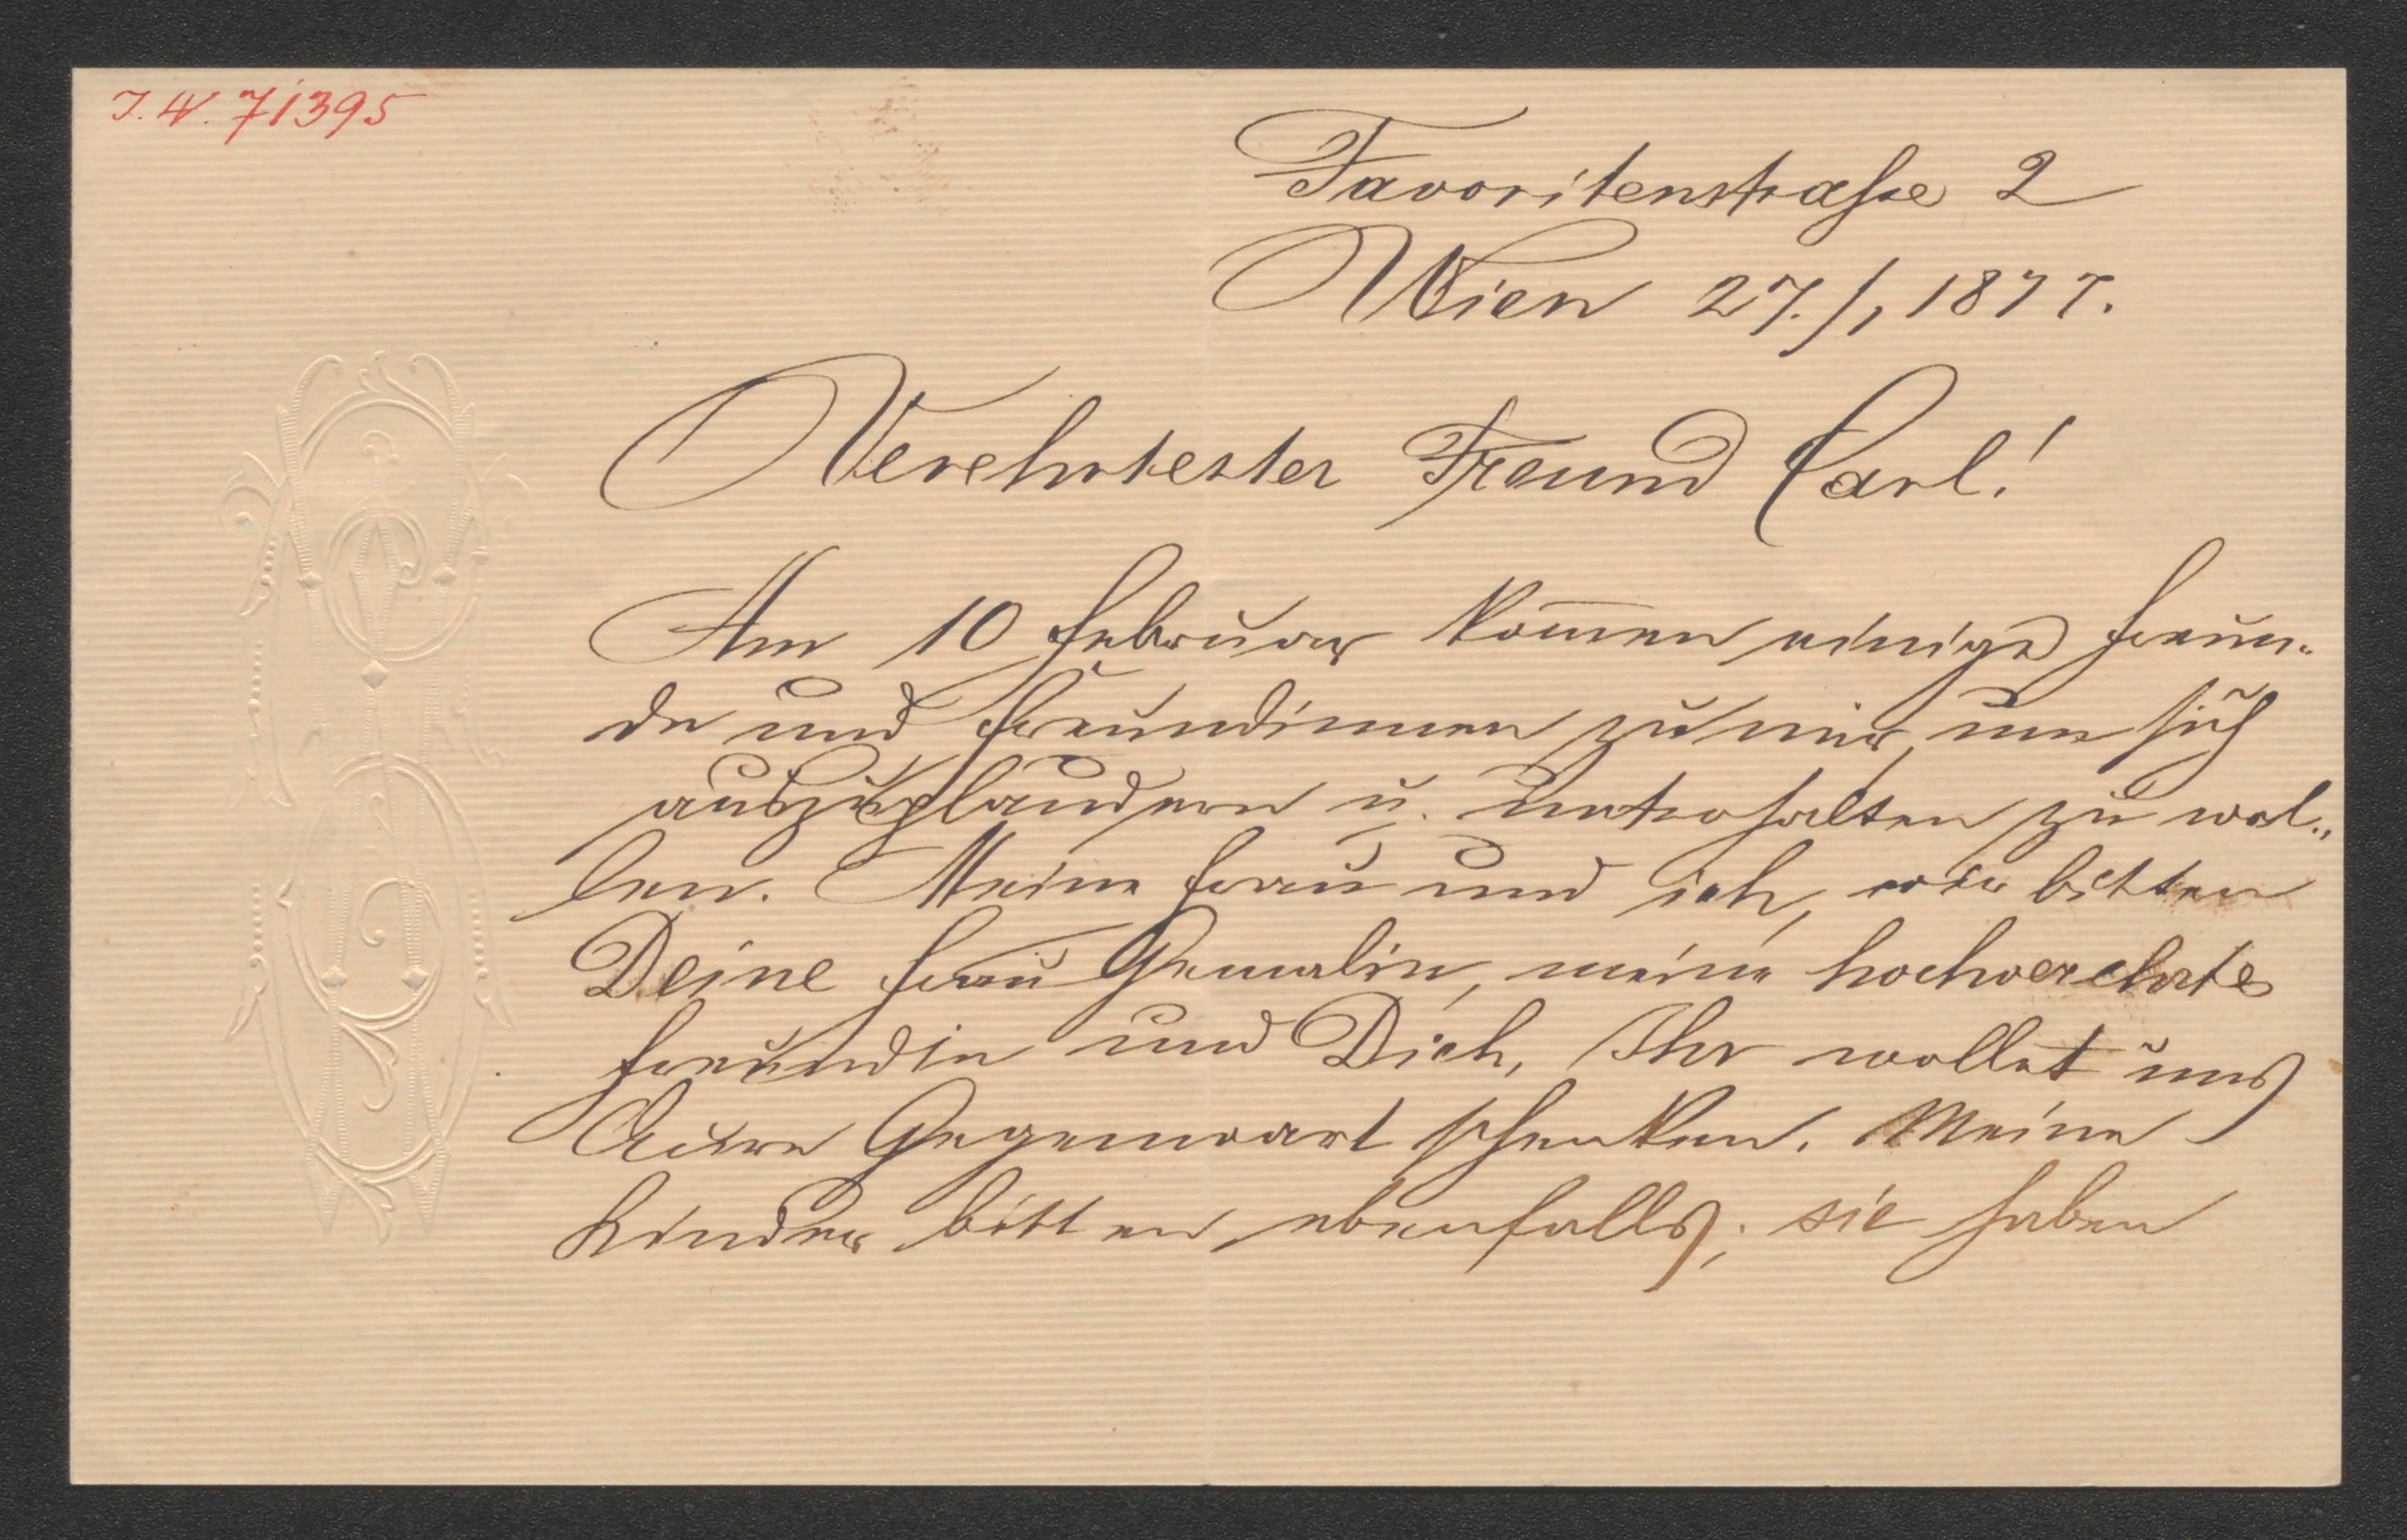 J.N. 71395
Favoritenstraße 2
Wien 27./1, 1877.
Verehrtester Freund Carl!
Am 10 Februar kom̄en einige Freun-
de und Freundinnen zu mir, um sich
auszuplaudern u. unterhalten zu wol-
len. Meine Frau und ich, wir bitten
Deine Frau Gemalin, meine hochverehrte
Freundin und Dich, Ihr wollet uns
Eure Gegenwart schenken. Meine
Kinder bitten ebenfalls; sie haben